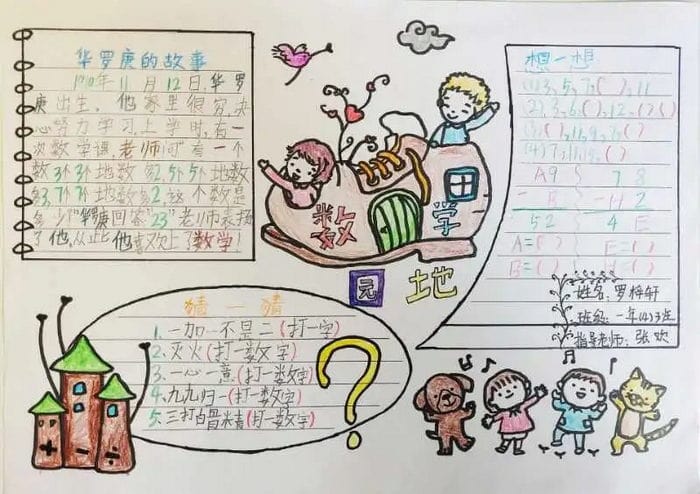 华罗庚的故事
1910年11月12日,华罗
庚出生,他家里很穷,决
心努力学习,上学时,有一
次数学课,老师问"有一个
数3个3个地数多2,5个5个地数
多3,7个7个地数多2,这个数是
多少"华罗庚回答"23"老师表扬
了他,从此他喜欢上了数学!
数学
园地
想一想
(1)3,5,7,( ),11
(2),3,6,( ),12,( )( )
(3)( ),11,9,7,( )
(4)7,11,
A9 7 8
- B -H 2
5 2 4 E
A=( ) E=( )
B=( ) H=( )
姓名:罗梓轩
班级:一年(4)班
指导老师:张欢
猜一猜
1.一加一不是二(打一字)
2.灭火(打一数字)
3.一心一意(打一数字)
4.九九归一(打一数字)
5.三打白骨精(打一数字)
?